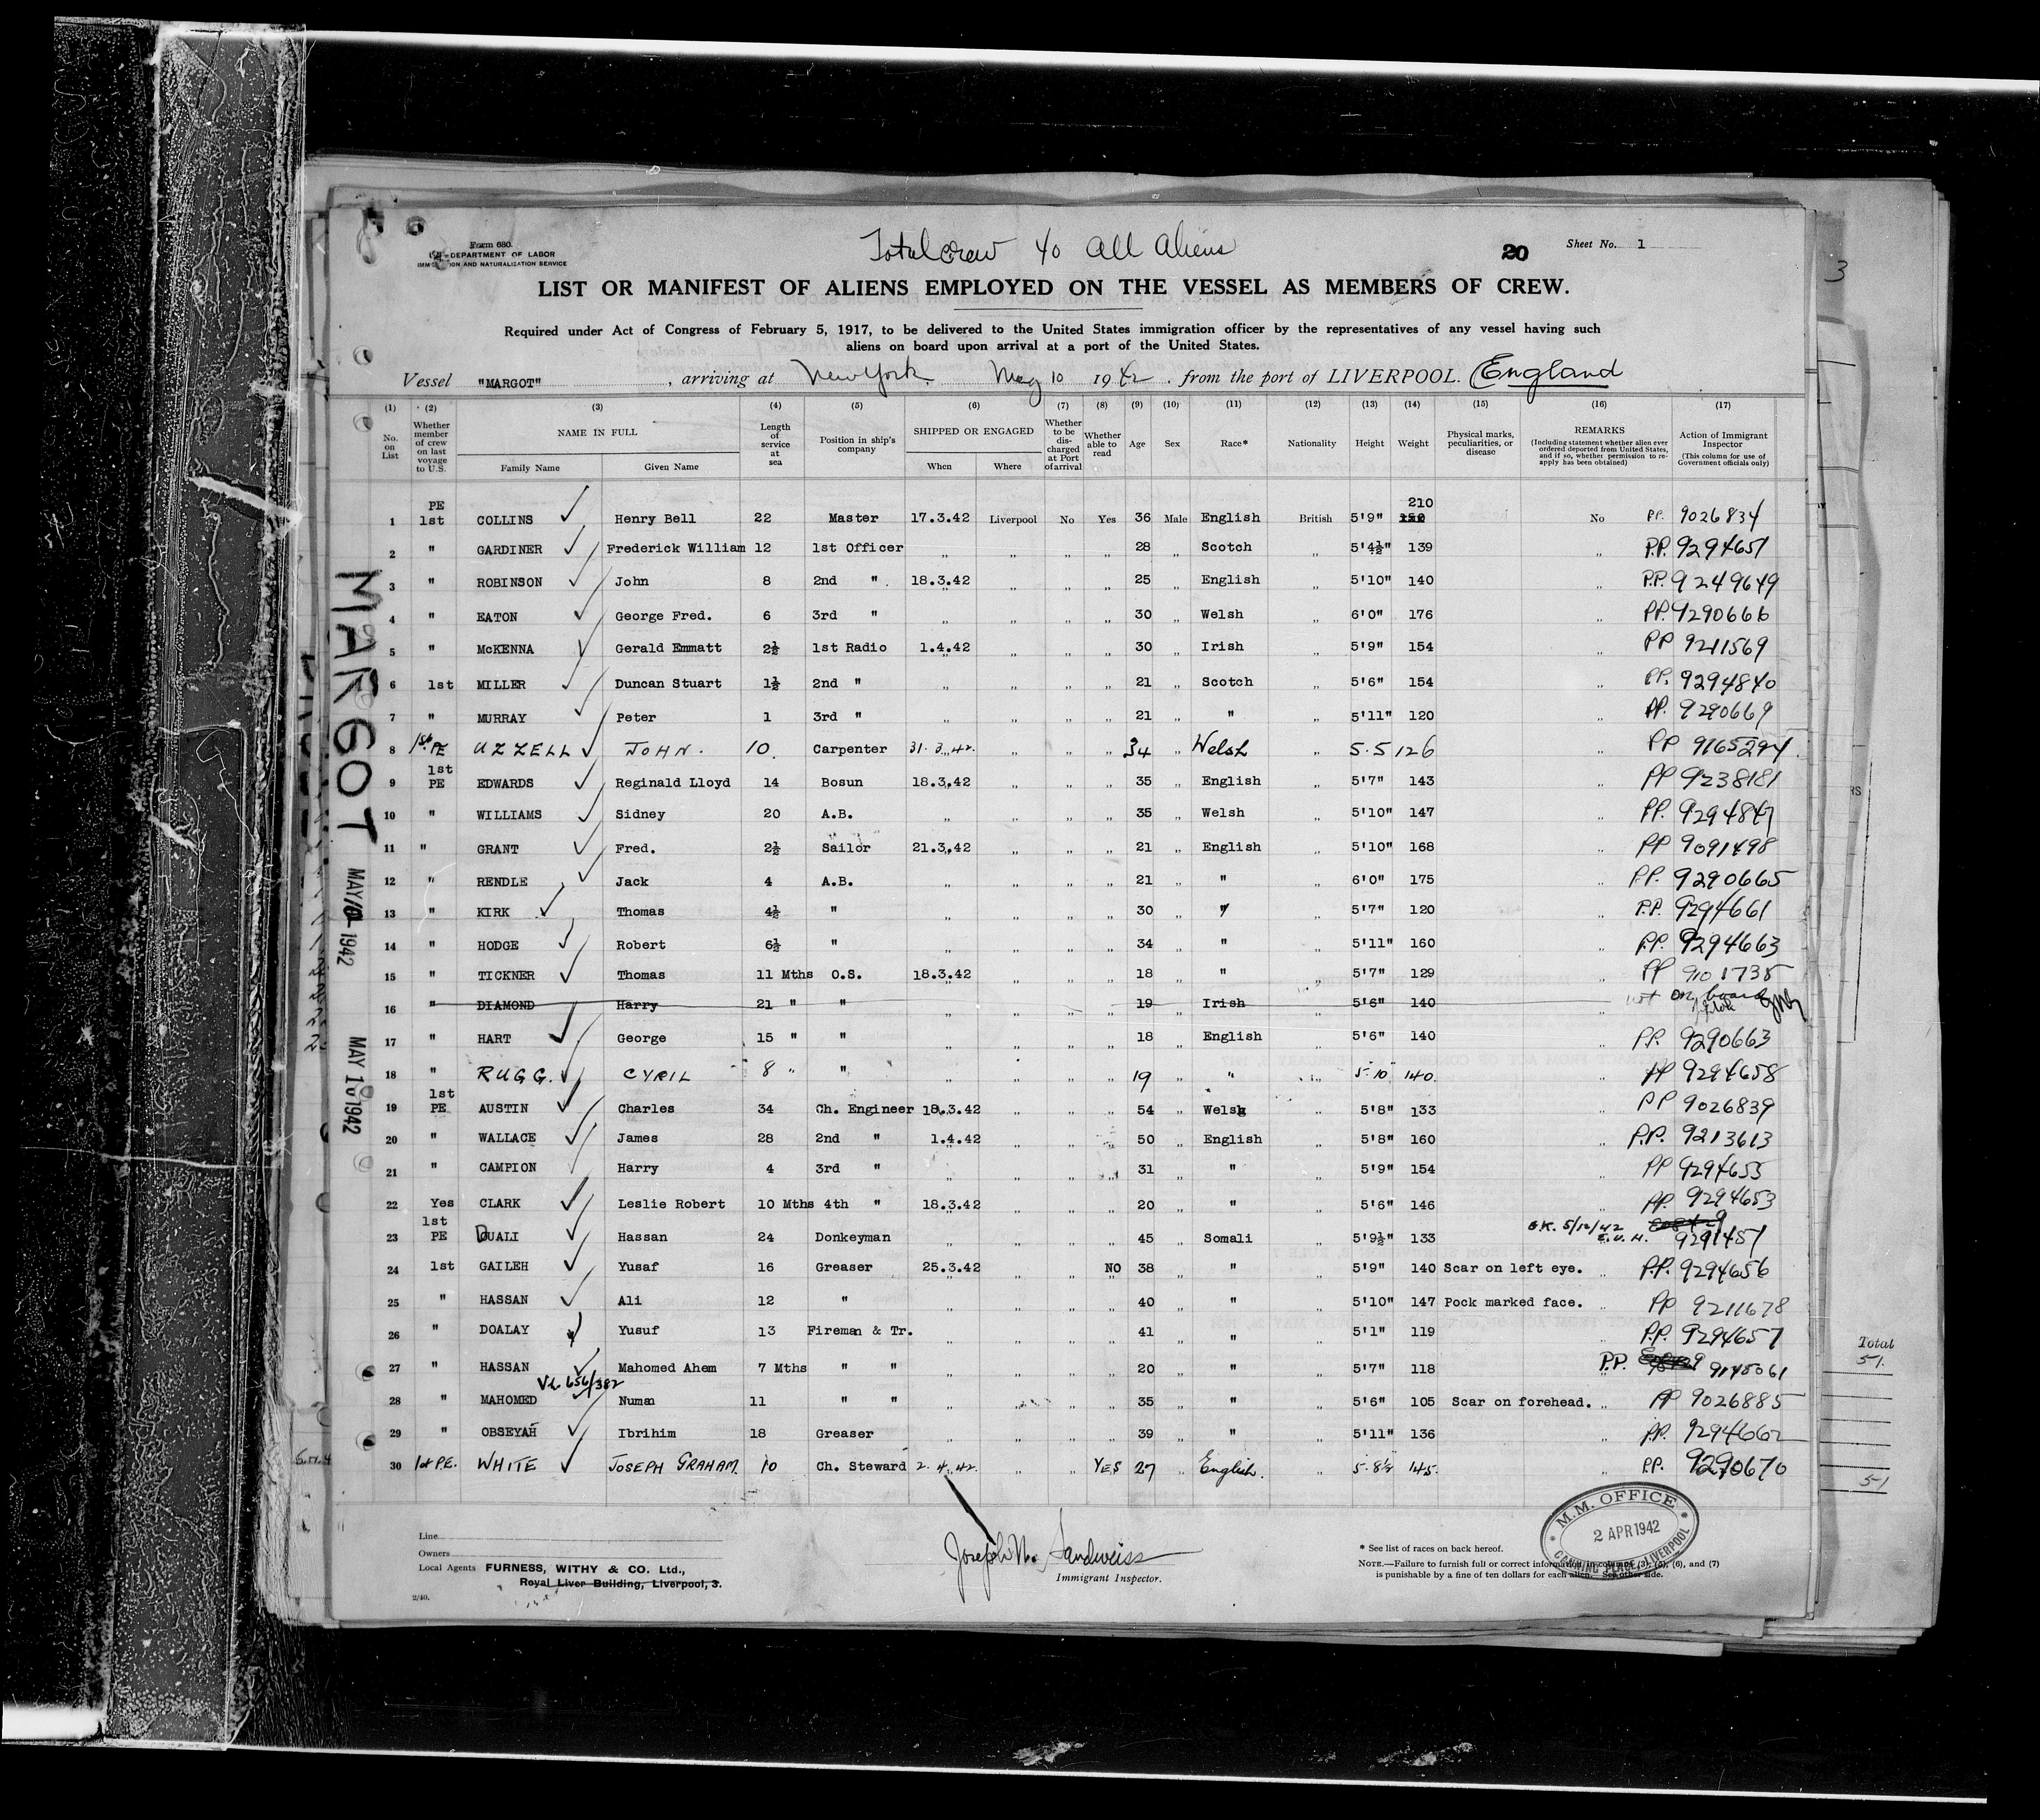 Form 680.
U.S. DEPARTMENT OF LABOR
IMMIGRATION AND NATURALIZATION SERVICE
Total crew 40 all aliens
20
Sheet No. 1
LIST OR MANIFEST OF ALIENS EMPLOYED ON THE VESSEL AS MEMBERS OF CREW.
Required under Act of Congress of February 5, 1917, to be delivered to the United States immigration officer by the representatives of any vessel having such
aliens on board upon arrival at a port of the United States.
Vessel "MARGOT", arriving at New York. May 10 1942. from the port of LIVERPOOL. England
(1) (2) (3) (4) (5) (6) (7) (8) (9) (10) (11) (12) (13) (14) (15) (16) (17)
No. on List Whether member of crew on last voyage to U.S. NAME IN FULL Family Name Given Name Length of service at sea Position in ship's company SHIPPED OR ENGAGED When Where Whether to be discharged at Port of arrival Whether able to read Age Sex Race* Nationality Height Weight Physical marks, peculiarities, or disease REMARKS (Including statement whether alien ever ordered deported from United States, and if so, whether permission to re-apply has been obtained) Action of Immigrant Inspector (This column for use of Government officials only)
1 PE 1st COLLINS ✓ Henry Bell 22 Master 17.3.42 Liverpool No Yes 36 Male English British 5'9" 210 150 No PP. 9026834
2 " GARDINER ✓ Frederick William 12 1st Officer ,, ,, ,, ,, 28 ,, Scotch ,, 5'4½" 139 ,, P.P. 9294651
3 " ROBINSON ✓ John 8 2nd " 18.3.42 ,, ,, ,, 25 ,, English ,, 5'10" 140 ,, P.P. 9249649
4 " EATON ✓ George Fred. 6 3rd " ,, ,, ,, ,, 30 ,, Welsh ,, 6'0" 176 ,, P.P. 9290666
5 " McKENNA ✓ Gerald Emmatt 2½ 1st Radio 1.4.42 ,, ,, ,, 30 ,, Irish ,, 5'9" 154 ,, PP 9211569
6 1st MILLER ✓ Duncan Stuart 1½ 2nd " ,, ,, ,, ,, 21 ,, Scotch ,, 5'6" 154 ,, PP. 9294840
7 " MURRAY ✓ Peter 1 3rd " ,, ,, ,, ,, 21 ,, " ,, 5'11" 120 ,, PP. 9290669
8 1st PE UZZELL ✓ JOHN. 10. Carpenter 31.3.42. ,, ,, ,, 34 ,, Welsh ,, 5.5 126 ,, PP 9165294
9 1st PE EDWARDS ✓ Reginald Lloyd 14 Bosun 18.3.42 ,, ,, ,, 35 ,, English ,, 5'7" 143 ,, PP 9238181
10 " WILLIAMS ✓ Sidney 20 A.B. ,, ,, ,, ,, 35 ,, Welsh ,, 5'10" 147 ,, PP. 9294847
11 " GRANT ✓ Fred. 2½ Sailor 21.3.42 ,, ,, ,, 21 ,, English ,, 5'10" 168 ,, PP 9091498
12 " RENDLE ✓ Jack 4 A.B. ,, ,, ,, ,, 21 ,, " ,, 6'0" 175 ,, P.P. 9290665
13 " KIRK ✓ Thomas 4½ " ,, ,, ,, ,, 30 ,, " ,, 5'7" 120 ,, P.P. 9294661
14 " HODGE ✓ Robert 6½ " ,, ,, ,, ,, 34 ,, " ,, 5'11" 160 ,, P.P. 9294663
15 " TICKNER ✓ Thomas 11 Mths O.S. 18.3.42 ,, ,, ,, 18 ,, " ,, 5'7" 129 ,, PP 9101735
16 " DIAMOND Harry 21 " " ,, ,, ,, ,, 19 ,, Irish ,, 5'6" 140 ,, not on board
17 " HART ✓ George 15 " " ,, ,, ,, ,, 18 ,, English ,, 5'6" 140 ,, PP. 9290663
18 " RUGG. ✓ CYRIL 8 " " ,, ,, ,, ,, 19 ,, " ,, 5.10 140. ,, PP 9294658
19 1st PE AUSTIN ✓ Charles 34 Ch. Engineer 18.3.42 ,, ,, ,, 54 ,, Welsh ,, 5'8" 133 ,, PP 9026839
20 " WALLACE ✓ James 28 2nd " 1.4.42 ,, ,, ,, 50 ,, English ,, 5'8" 160 ,, P.P. 9213613
21 " CAMPION ✓ Harry 4 3rd " ,, ,, ,, ,, 31 ,, " ,, 5'9" 154 ,, PP 9294655
22 Yes CLARK ✓ Leslie Robert 10 Mths 4th " 18.3.42 ,, ,, ,, 20 ,, " ,, 5'6" 146 ,, PP. 9294653
23 1st PE DUALI ✓ Hassan 24 Donkeyman ,, ,, ,, ,, 45 ,, Somali ,, 5'9½" 133 O.K. 5/12/42 E.V.H. 9291451
24 1st GAILEH ✓ Yusaf 16 Greaser 25.3.42 ,, ,, NO 38 ,, " ,, 5'9" 140 Scar on left eye. ,, P.P. 9294656
25 " HASSAN ✓ Ali 12 " ,, ,, ,, ,, 40 ,, " ,, 5'10" 147 Pock marked face. ,, PP 9211678
26 " DOALAY ✓ Yusuf 13 Fireman & Tr. ,, ,, ,, ,, 41 ,, " ,, 5'1" 119 ,, P.P. 9294657
27 " HASSAN ✓ Mahomed Ahem 7 Mths " " ,, ,, ,, ,, 20 ,, " ,, 5'7" 118 P.P. 9145061
VL. 656/382
28 " MAHOMED ✓ Numan 11 " " ,, ,, ,, ,, 35 ,, " ,, 5'6" 105 Scar on forehead. ,, PP 9026885
29 " OBSEYAH ✓ Ibrihim 18 Greaser ,, ,, ,, ,, 39 ,, " ,, 5'11" 136 ,, PP. 9294662
30 1st P.E. WHITE ✓ JOSEPH GRAHAM. 10 Ch. Steward 2.4.42. ,, ,, YES 27 ,, English. ,, 5.8½ 145. ,, P.P. 9290670
Line
Owners
Local Agents FURNESS, WITHY & CO. Ltd.,
Royal Liver Building, Liverpool, 3.
2/40.
Joseph N. Sandweiss
Immigrant Inspector.
* See list of races on back hereof.
NOTE.—Failure to furnish full or correct information in columns (3), (5), (6), and (7)
is punishable by a fine of ten dollars for each alien. See other side.
M.M. OFFICE
2 APR 1942
CANNING PLACE, LIVERPOOL
MARGOT
MAY 10 1942
MAY 10 1942
3
Total
51.
51